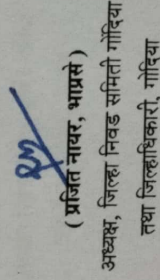 ( प्रजित नायर, भाप्रसे )
अध्यक्ष, जिल्हा निवड समिती गोंदिया
तथा जिल्हाधिकारी, गोंदिया